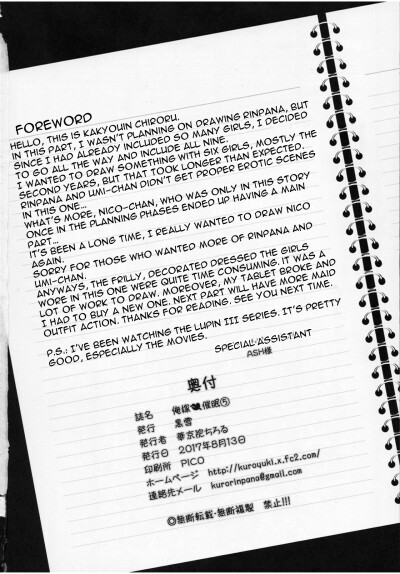 FOREWORD
HELLO, THIS IS KAKYOUIN CHIRORU.
IN THIS PART, I WASN'T PLANNING ON DRAWING RINPANA, BUT
SINCE I HAD ALREADY INCLUDED SO MANY GIRLS, I DECIDED
TO GO ALL THE WAY AND INCLUDE ALL NINE.
I WANTED TO DRAW SOMETHING WITH SIX GIRLS, MOSTLY THE
SECOND YEARS, BUT THAT TOOK LONGER THAN EXPECTED.
RINPANA AND UMI-CHAN DIDN'T GET PROPER EROTIC SCENES
IN THIS ONE...
WHAT'S MORE, NICO-CHAN, WHO WAS ONLY IN THIS STORY
ONCE IN THE PLANNING PHASES ENDED UP HAVING A MAIN
PART...
IT'S BEEN A LONG TIME, I REALLY WANTED TO DRAW NICO
AGAIN.
SORRY FOR THOSE WHO WANTED MORE OF RINPANA AND
UMI-CHAN.
ANYWAYS, THE FRILLY, DECORATED DRESSED THE GIRLS
WORE IN THIS ONE WERE QUITE TIME CONSUMING. IT WAS A
LOT OF WORK TO DRAW. MOREOVER, MY TABLET BROKE AND
I HAD TO BUY A NEW ONE. NEXT PART WILL HAVE MORE MAID
OUTFIT ACTION. THANKS FOR READING. SEE YOU NEXT TIME.
P.S.: I'VE BEEN WATCHING THE LUPIN III SERIES. IT'S PRETTY
GOOD, ESPECIALLY THE MOVIES.
SPECIAL ASSISTANT
ASH様
奥付
誌名 俺嫁催眠⑤
発行 黒雪
発行者 華京院ちろる
発行日 2017年8月13日
印刷所 PICO
ホームページ http://kuroyuki.x.fc2.com/
連絡先メール kurorinpana@gmail.com
©無断転載・無断複製 禁止!!!